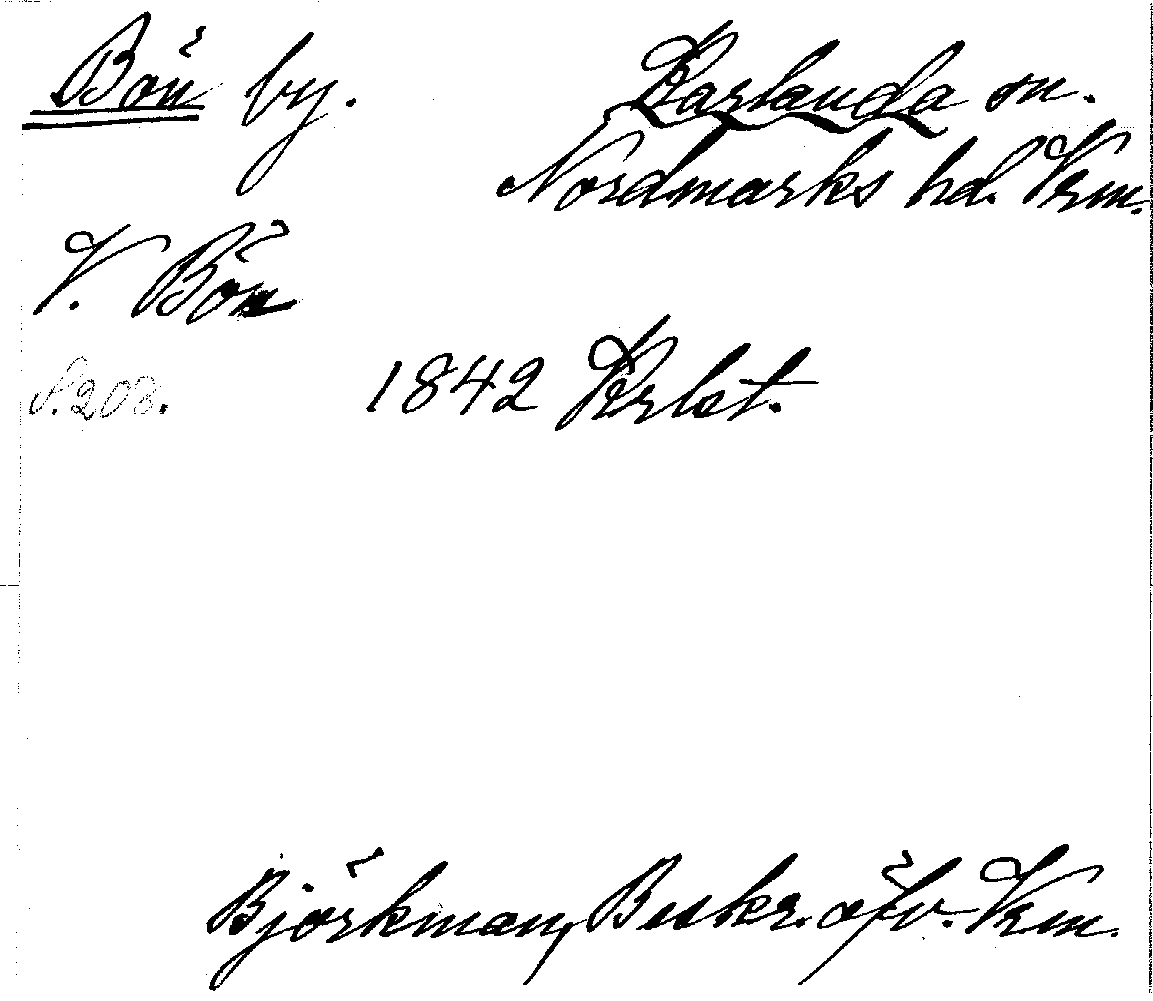 Bön by.
Karlanda sn.
Nordmarks hd. Vrm.
V. Bön
S. 208.
1842 Krlst.
Björkman, Beskr. öfv. Vrm.